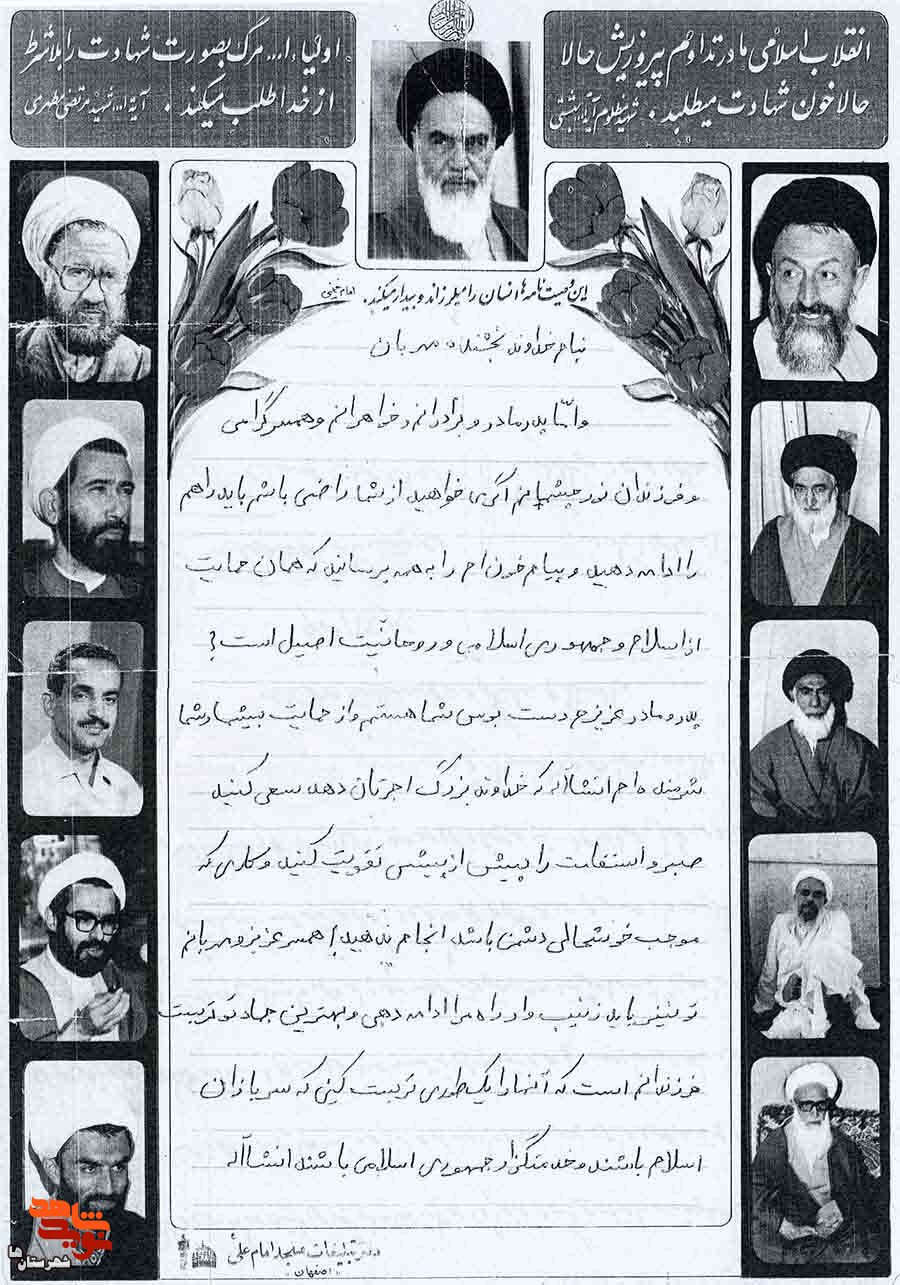 انقلاب اسلامی ما در تداوم پیروزیش حالا
حالا خون شهادت میطلبد. شهید مظلوم آیة... بهشتی
اولیاء ا... مرگ بصورت شهادت را بلاشرط
از خدا طلب میکنند. آیة... شهید مرتضی مطهری
این وصیت نامه‌ها انسان را میلرزاند و بیدار میکند. امام خمینی
بنام خداوند بخشنده مهربان
و امّا پدر مادر و برادرانم و خواهرانم و همسر گرامی
و فرزندان نور چشمانم اگر می خواهید از شما راضی باشم باید راهم
را ادامه دهید و پیام خون ام را به همه برسانید که همان حمایت
از اسلام و جمهوری اسلامی و روحانیّت اصیل است؟
پدر و مادر عزیزم دست بوس شما هستم و از حمایت بیشمار شما
شرمنده ام انشاأله که خداوند بزرگ اجرتان دهد سعی کنید
صبر و استقامت را بیش از پیش تقویت کنید و کاری که
موجب خوشحالی دشمن باشد انجام ندهید! همسر عزیز و مهربانم
تو نیز باید زینب وار راه مرا ادامه دهی و بهترین جهاد تو تربیت
فرزندانم است که آنها را یک طوری تربیت کنی که سربازان
اسلام باشند و خدمتگزار جمهوری اسلامی باشند انشاأله
دفتر تبلیغات مسجد امام علی
اصفهان
نوید شاهد
شهرستان ها